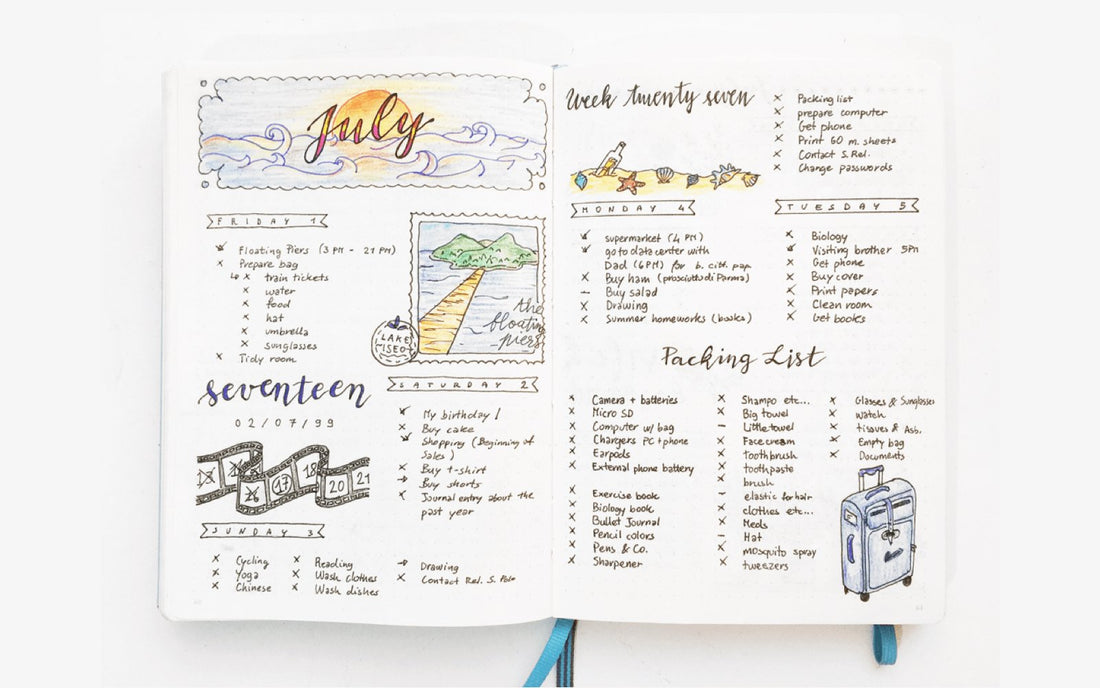 July
FRIDAY 1
Floating Piers (3 PM - 21 PM)
Prepare bag
train tickets
water
food
hat
umbrella
sunglasses
Tidy room
the
floating
piers
LAKE
ISEO
seventeen
02/07/99
17
18
20
21
SATURDAY 2
My birthday!
Buy cake
Shopping (Beginning of
sales)
Buy t-shirt
Buy shorts
Journal entry about the
past year
SUNDAY 3
Cycling
Yoga
Chinese
Reading
Wash clothes
Wash dishes
Drawing
Contact Rel. S. Polo
Week twenty seven
Packing list
prepare computer
Get phone
Print 60 m. sheets
Contact S. Rel.
Change passwords
MONDAY 4
supermarket (4 PM)
go to data center with
Dad (6 PM) for b. citt. pap.
Buy ham (prosciutto di Parma)
Buy salad
Drawing
Summer homeworks (books)
TUESDAY 5
Biology
Visiting brother 5PM
Get phone
Buy cover
Print papers
Clean room
Get books
Packing List
Camera + batteries
Micro SD
Computer w/ bag
Chargers PC + phone
Earpods
External phone battery
Exercise book
Biology book
Bullet Journal
Pencil colors
Pens & Co.
Sharpener
Shampo etc...
Big towel
Little towel
Face cream
Toothbrush
toothpaste
brush
elastic for hair
clothes etc...
Meds
Hat
mosquito spray
tweezers
Glasses & Sunglasses
Watch
tisaves & Ass.
Empty bag
Documents